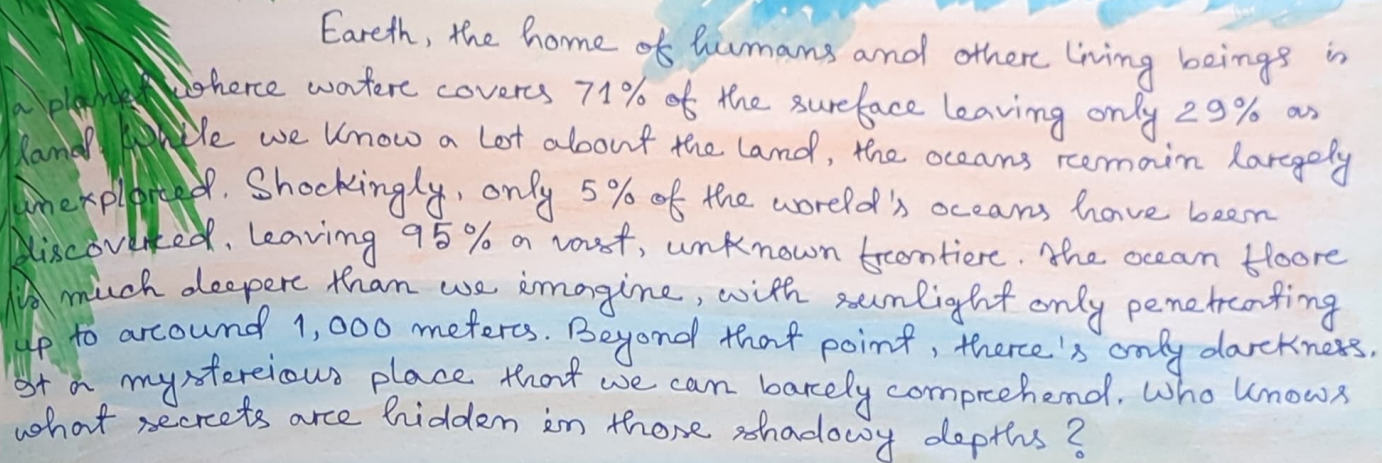 Earth, the home of humans and other living beings is
a planet where water covers 71% of the surface leaving only 29% as
land. While we know a lot about the land, the oceans remain largely
unexplored. Shockingly, only 5% of the world's oceans have been
discovered, leaving 95% a vast, unknown frontier. The ocean floor
is much deeper than we imagine, with sunlight only penetrating
up to around 1,000 meters. Beyond that point, there's only darkness.
It a mysterious place that we can barely comprehend. Who knows
what secrets are hidden in those shadowy depths?